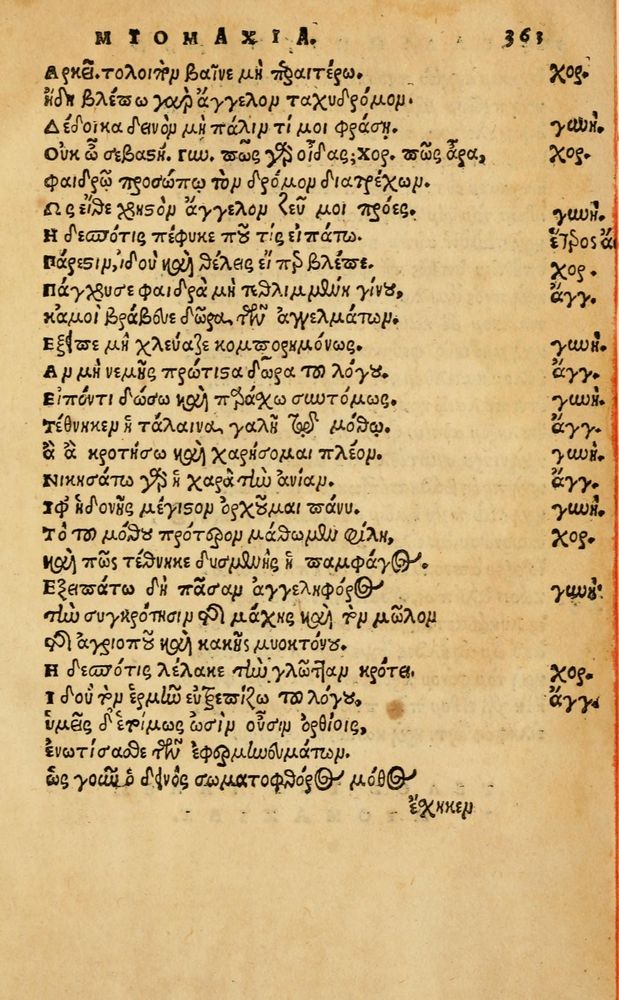 ΜΥΟΜΑΧΙΑ. 363
Αρκεῖ. τολοιπὸν βαῖνε μὴ πραιτέρω. χορ.
ἤδη βλέπω γὰρ ἄγγελον ταχυδρόμον.
Δέδοικα δεινὸν μὴ πάλιν τί μοι φράσῃ. γωνή.
Οὐκ ὦ σεβαστή. γω. πῶς γὰρ οἶδας; χορ. πῶς ἄρα, χορ.
φαιδρῷ προσώπῳ τὸν δρόμον διατρέχων.
Ως εἴθε χρηστὸν ἄγγελον ζεῦ μοι πρόες. γωνή.
Η δεσπότις πέφυκε ποῦ τίς εἰπάτω. ἕτερος ἄ
Πάρεστιν, ἰδοὺ καὶ θέλεις εἴπερ βλέπε. χορ.
Πάγχυσε φαιδρὰ μὴ τεθλιμμένη γίνου, ἄγγ.
κἀμοὶ βράβευε δῶρα τῶν ἀγγελμάτων.
Εξεῖπε μὴ χλεύαζε κομπορημόνως. γωνή.
Αν μὴ νεμῇς πρώτιστα δῶρα τοῦ λόγου. ἄγγ.
Εἰπόντι δώσω καὶ παράχω συντόμως. γωνή.
Τέθνηκεν ἡ τάλαινα γαλῆ τῷ μόθῳ. ἄγγ.
ἆ ἆ κροτήσω καὶ χαρήσομαι πλέον. γωνή.
Νικησάτω γὰρ ἡ χαρὰ τὴν ἀνίαν. ἄγγ.
Ὑφ' ἡδονῆς μέγιστον ὀρχοῦμαι πάνυ. γωνή.
Τὸ τοῦ μόθου πρότερον μάθωμεν φίλη, χορ.
καὶ πῶς τέθνηκε δυσμενὴς ἡ παμφάγος.
Εξειπάτω δὴ πᾶσαν ἀγγεληφόρος γωνή.
τὴν συγκρότησιν τῆς μάχης καὶ τὸν μῶλον
τῆς ἀγριοποῦ καὶ κακῆς μυοκτόνου.
Η δεσπότις λέλακε τὴν γλῶτταν κρότει. χορ.
Ιδοὺ τὸν εἱρμὸν εὐτρεπίζω τοῦ λόγου, ἄγγ.
ὑμεῖς δ' ἑτοίμως ὠσὶν οὖσιν ὀρθίοις,
ἐνωτίσασθε τῶν ἐφερμηνευμάτων.
ὡς γοῦν ὁ δεινὸς σωματοφθόρος μόθος
ἔχηκεν